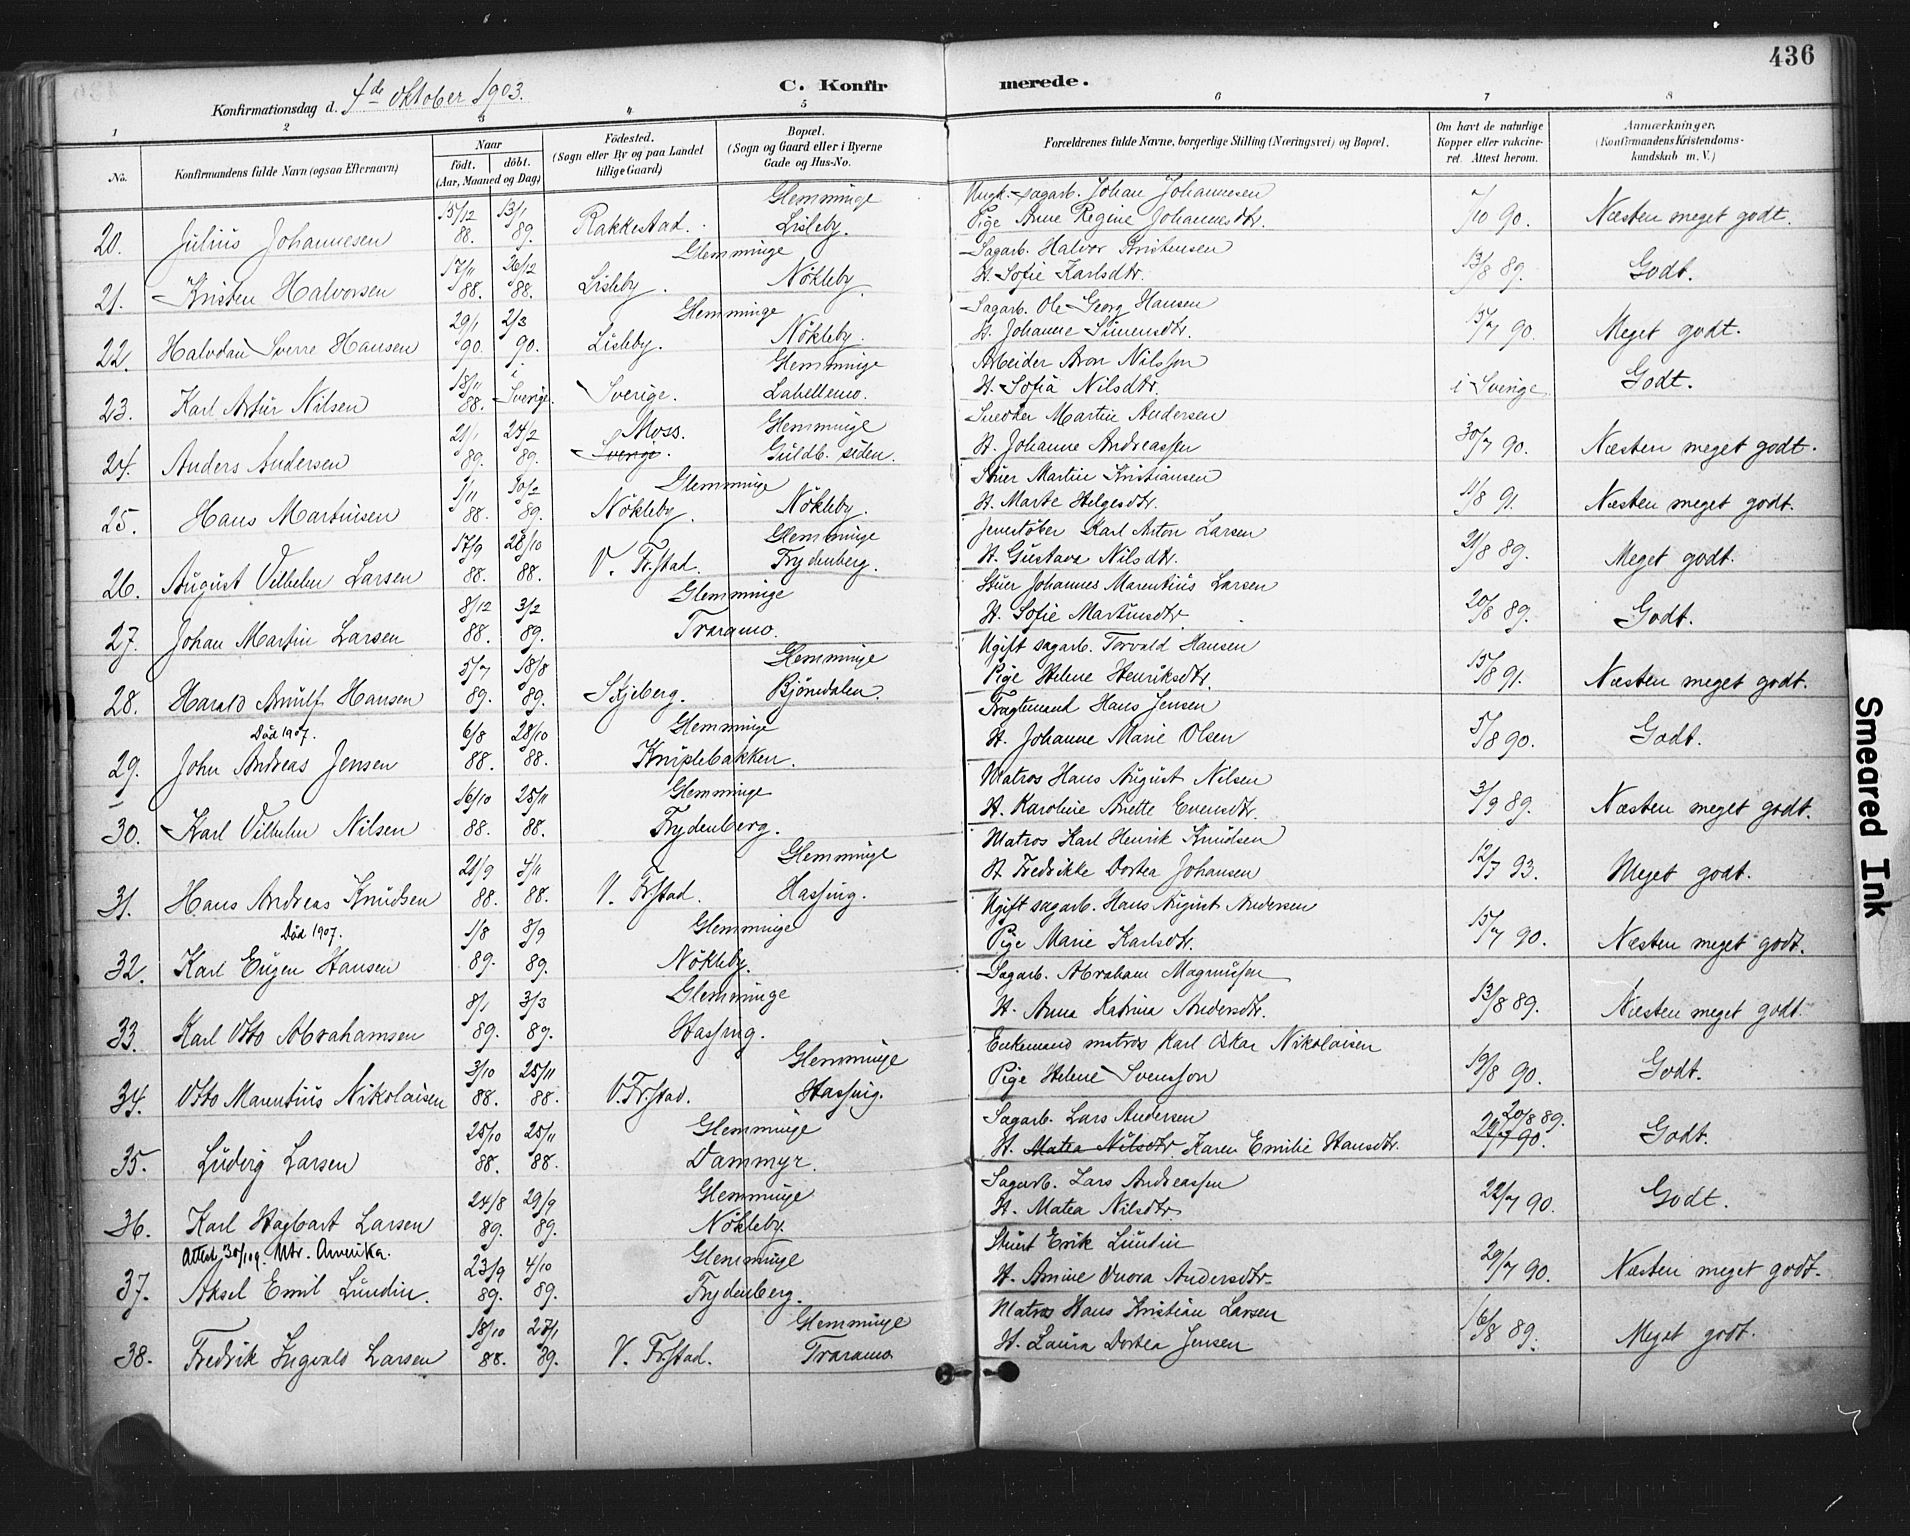 436
Konfirmationsdag d. 4de Oktober 1903.
C. Konfirmerede.
1 2 3 4 5 6 7 8
No.
Konfirmandens fulde Navn (ogsaa Efternavn)
Naar
födt. döbt.
(Aar, Maaned og Dag)
Födested.
(Sogn eller By og paa Landet
tillige Gaard)
Bopæl.
(Sogn og Gaard eller i Byerne
Gade og Hus-No.
Forældrenes fulde Navne, borgerlige Stilling (Næringsvei) og Bopæl.
Om havt de naturlige
Kopper eller vakcine-
ret. Attest herom.
Anmærkninger,
(Konfirmandens Kristendoms-
kundskab m. V.)
20. Julius Johannesen 15/12 88. 13/1 89. Rakkestad. Glemminge Lisleby. Ungk. sagarb. Johan Johannesen
Pige Anne Regine Johannesdtr. 7/10 90. Næsten meget godt.
21. Kristen Halvorsen 17/11 88. 26/12 88. Glemminge Lisleby. Nökleby. Sagarb. Halvor Kristensen
H. Sofie Karlsdtr. 13/8 89. Godt.
22. Halvdan Sverre Hansen 29/1 90. 2/3 90. Glemminge Lisleby. Nökleby. Sagarb. Ole Georg Hansen
H. Johanne Simensdtr. 15/7 90. Meget godt.
23. Karl Artur Nilsen 18/11 88. i Sverige. Sverige. Glemminge Labellemo. Arbeider Aron Nilsson
H. Sofia Nilsdtr. i Sverige Godt.
24. Anders Andersen 21/1 89. 24/2 89. Moss. Sverige. Glemminge Guldb. siden. Snedker Martin Andersen
H. Johanne Andreassen 30/7 90. Næsten meget godt.
25. Hans Martinsen 1/11 88. 10/2 89. Glemminge Nökleby. Nökleby. Stuer Martin Kristiansen
H. Marte Helgesdtr. 11/8 91. Næsten meget godt.
26. August Vilhelm Larsen 17/9 88. 28/10 88. V. Fr.stad. Glemminge Frydenberg. Jernstöber Karl Anton Larsen
H. Gustava Nilsdtr. 21/8 89. Meget godt.
27. Johan Martin Larsen 8/12 88. 3/2 89. Glemminge Traramo. Stuer Johannes Marentius Larsen
H. Sofie Martinsdtr. 20/8 89. Godt.
28. Harald Arnulf Hansen 5/7 89. 18/8 89. Skjeberg. Glemminge Björndalen. Ugift sagarb. Torvald Hansen
Pige Helene Henriksdtr. 15/8 91. Næsten meget godt.
Död 1907.
29. John Andreas Jensen 6/8 88. 28/10 88. Glemminge Kniplebakken. Fragtemand Hans Jensen
H. Johanne Marie Olsen 5/8 90. Godt.
30. Karl Vilhelm Nilsen 16/10 88. 25/11 88. Glemminge Frydenberg. Matros Hans August Nilsen
H. Karoline Anette Evensdtr. 3/9 89. Næsten meget godt.
31. Hans Andreas Knudsen 21/9 88. 4/11 88. V. Fr.stad. Glemminge Hassing. Matros Karl Henrik Knudsen
H. Fredrikke Dortea Johansen 12/7 93. Meget godt.
Död 1907.
32. Karl Eugen Hansen 1/8 89. 8/9 89. Glemminge Nökleby. Ugift sagarb. Hans August Andersen
Pige Marie Karlsdtr. 15/7 90. Næsten meget godt.
33. Karl Otto Abrahamsen 8/1 89. 3/3 89. Glemminge Hassing. Sagarb. Abraham Magnussen
H. Anna Katrina Andersdtr. 13/8 89. Næsten meget godt.
34. Otto Marentius Nikolaisen 3/10 88. 25/11 88. V. Fr.stad. Glemminge Hassing. Enkemand matros Karl Oskar Nikolaisen
Pige Helene Svensson 19/8 90. Godt.
35. Ludvig Larsen 25/10 88. 25/11 88. Glemminge Dammyr. Sagarb. Lars Andersen
H. Matea Nilsdtr. Karen Emilie Hansdtr. 20/8 89. 22/7 90. Godt.
36. Karl Hagbart Larsen 24/8 89. 29/9 89. Glemminge Nökleby. Sagarb. Lars Andreassen
H. Matea Nilsdtr. 22/7 90. Godt.
Attest 30/1 09. Utv. Amerika.
37. Aksel Emil Lundin. 23/9 89. 4/10 89. Glemminge Frydenberg. Stuert Erik Lundin
H. Amine Andersdtr. 29/7 90. Næsten meget godt.
38. Fredrik Ingvald Larsen 18/10 88. 27/1 89. V. Fr.stad. Glemminge Traramo. Matros Hans Kristian Larsen
H. Laura Dortea Jensen 16/8 89. Meget godt.
Smeared Ink